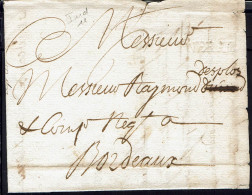 Messieurs
Messieur Raymond desplos
& Comp Negt a
Bordeaux